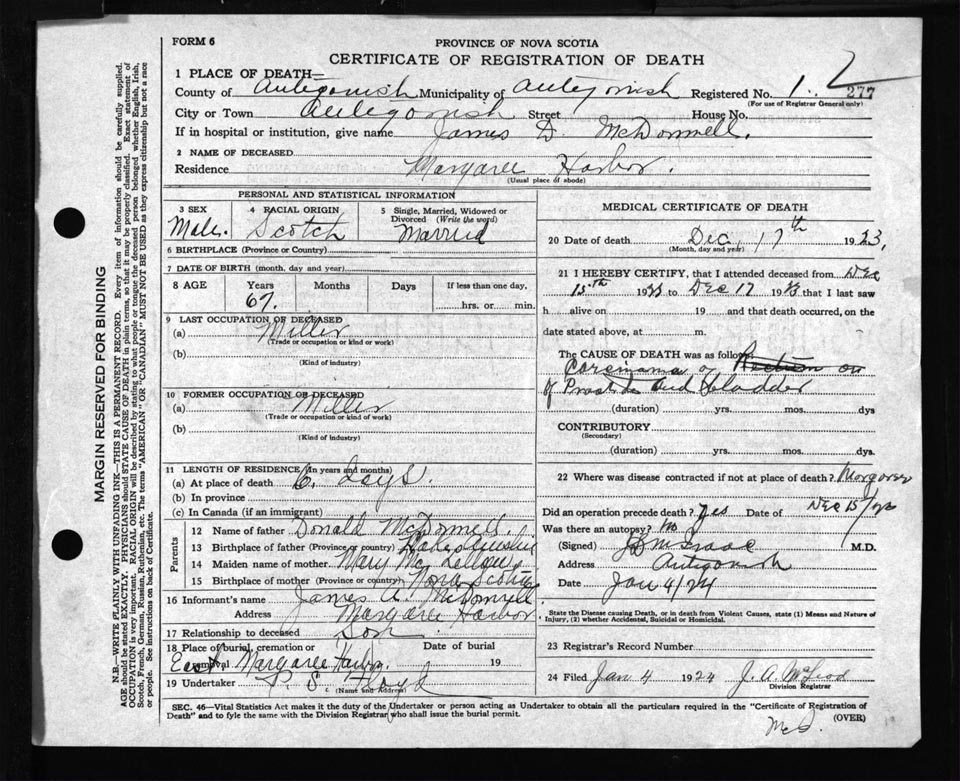 FORM 6
PROVINCE OF NOVA SCOTIA
CERTIFICATE OF REGISTRATION OF DEATH
1 PLACE OF DEATH—
County of Antigonish Municipality of Antigonish Registered No. 1.
277
(For use of Registrar General only)
City or Town Antigonish Street House No.
If in hospital or institution, give name James D McDonnell.
2 NAME OF DECEASED
Residence Margaree Harbor.
(Usual place of abode)
PERSONAL AND STATISTICAL INFORMATION
3 SEX Male.
4 RACIAL ORIGIN Scotch
5 Single, Married, Widowed or Divorced (Write the word) Married
6 BIRTHPLACE (Province or Country)
7 DATE OF BIRTH (month, day and year)
8 AGE Years 67. Months Days If less than one day, hrs. or min.
9 LAST OCCUPATION OF DECEASED
(a) Miller
(Trade or occupation or kind of work)
(b)
(Kind of industry)
10 FORMER OCCUPATION OF DECEASED
(a) Miller
(Trade or occupation or kind of work)
(b)
(Kind of industry)
11 LENGTH OF RESIDENCE (in years and months)
(a) At place of death 6. Days.
(b) In province
(c) In Canada (if an immigrant)
Parents
12 Name of father Donald McDonnell.
13 Birthplace of father (Province or country)
14 Maiden name of mother Mary Mc Lellan
15 Birthplace of mother (Province or country) Nova Scotia
16 Informant's name James A. McDonnell
Address Margaree Harbor
17 Relationship to deceased Son
18 Place of burial, cremation or removal East Margaree Harbor. Date of burial 19
19 Undertaker P. S. Floyd
(Name and Address)
MEDICAL CERTIFICATE OF DEATH
20 Date of death Dec, 17th 1923,
(Month, day and year)
21 I HEREBY CERTIFY, that I attended deceased from Dec
15th 1923 to Dec 17 1923 that I last saw
h alive on 19 and that death occurred, on the
date stated above, at m.
The CAUSE OF DEATH was as follows
Carcinoma of
of Prostate and bladder
(duration) yrs. mos. dys
CONTRIBUTORY
(Secondary)
(duration) yrs. mos. dys.
22 Where was disease contracted if not at place of death? Margaree
Did an operation precede death? yes Date of Dec 15/23
Was there an autopsy? no
(Signed) McIsaac M.D.
Address Antigonish
Date Jan 4/24
State the Disease causing Death, or in death from Violent Causes, state (1) Means and Nature of
Injury, (2) whether Accidental, Suicidal or Homicidal.
23 Registrar's Record Number
24 Filed Jan 4 1924 J. A. McLeod
Division Registrar
SEC. 46—Vital Statistics Act makes it the duty of the Undertaker or person acting as Undertaker to obtain all the particulars required in the "Certificate of Registration of
Death" and to fyle the same with the Division Registrar who shall issue the burial permit.
(OVER)
MARGIN RESERVED FOR BINDING
N.B.—WRITE PLAINLY WITH UNFADING INK—THIS IS A PERMANENT RECORD. Every item of information should be carefully supplied.
AGE should be stated EXACTLY. PHYSICIANS should STATE CAUSE OF DEATH in plain terms, so that it may be properly classified. Exact statement of
OCCUPATION is very important. RACIAL ORIGIN will be described by stating to what people or tongue the deceased person belonged whether English, Irish,
Scotch, French, German, Russian, Ruthenian, etc. The terms "AMERICAN" OR "CANADIAN" MUST NOT BE USED as they express citizenship but not a race
or people. See instructions on back of Certificate.